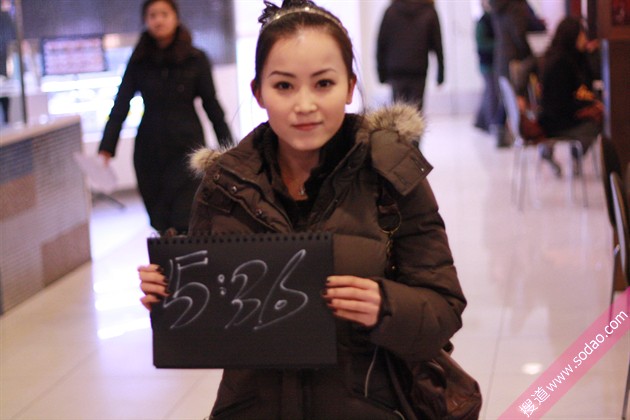 5:36
搜道www.sodao.com